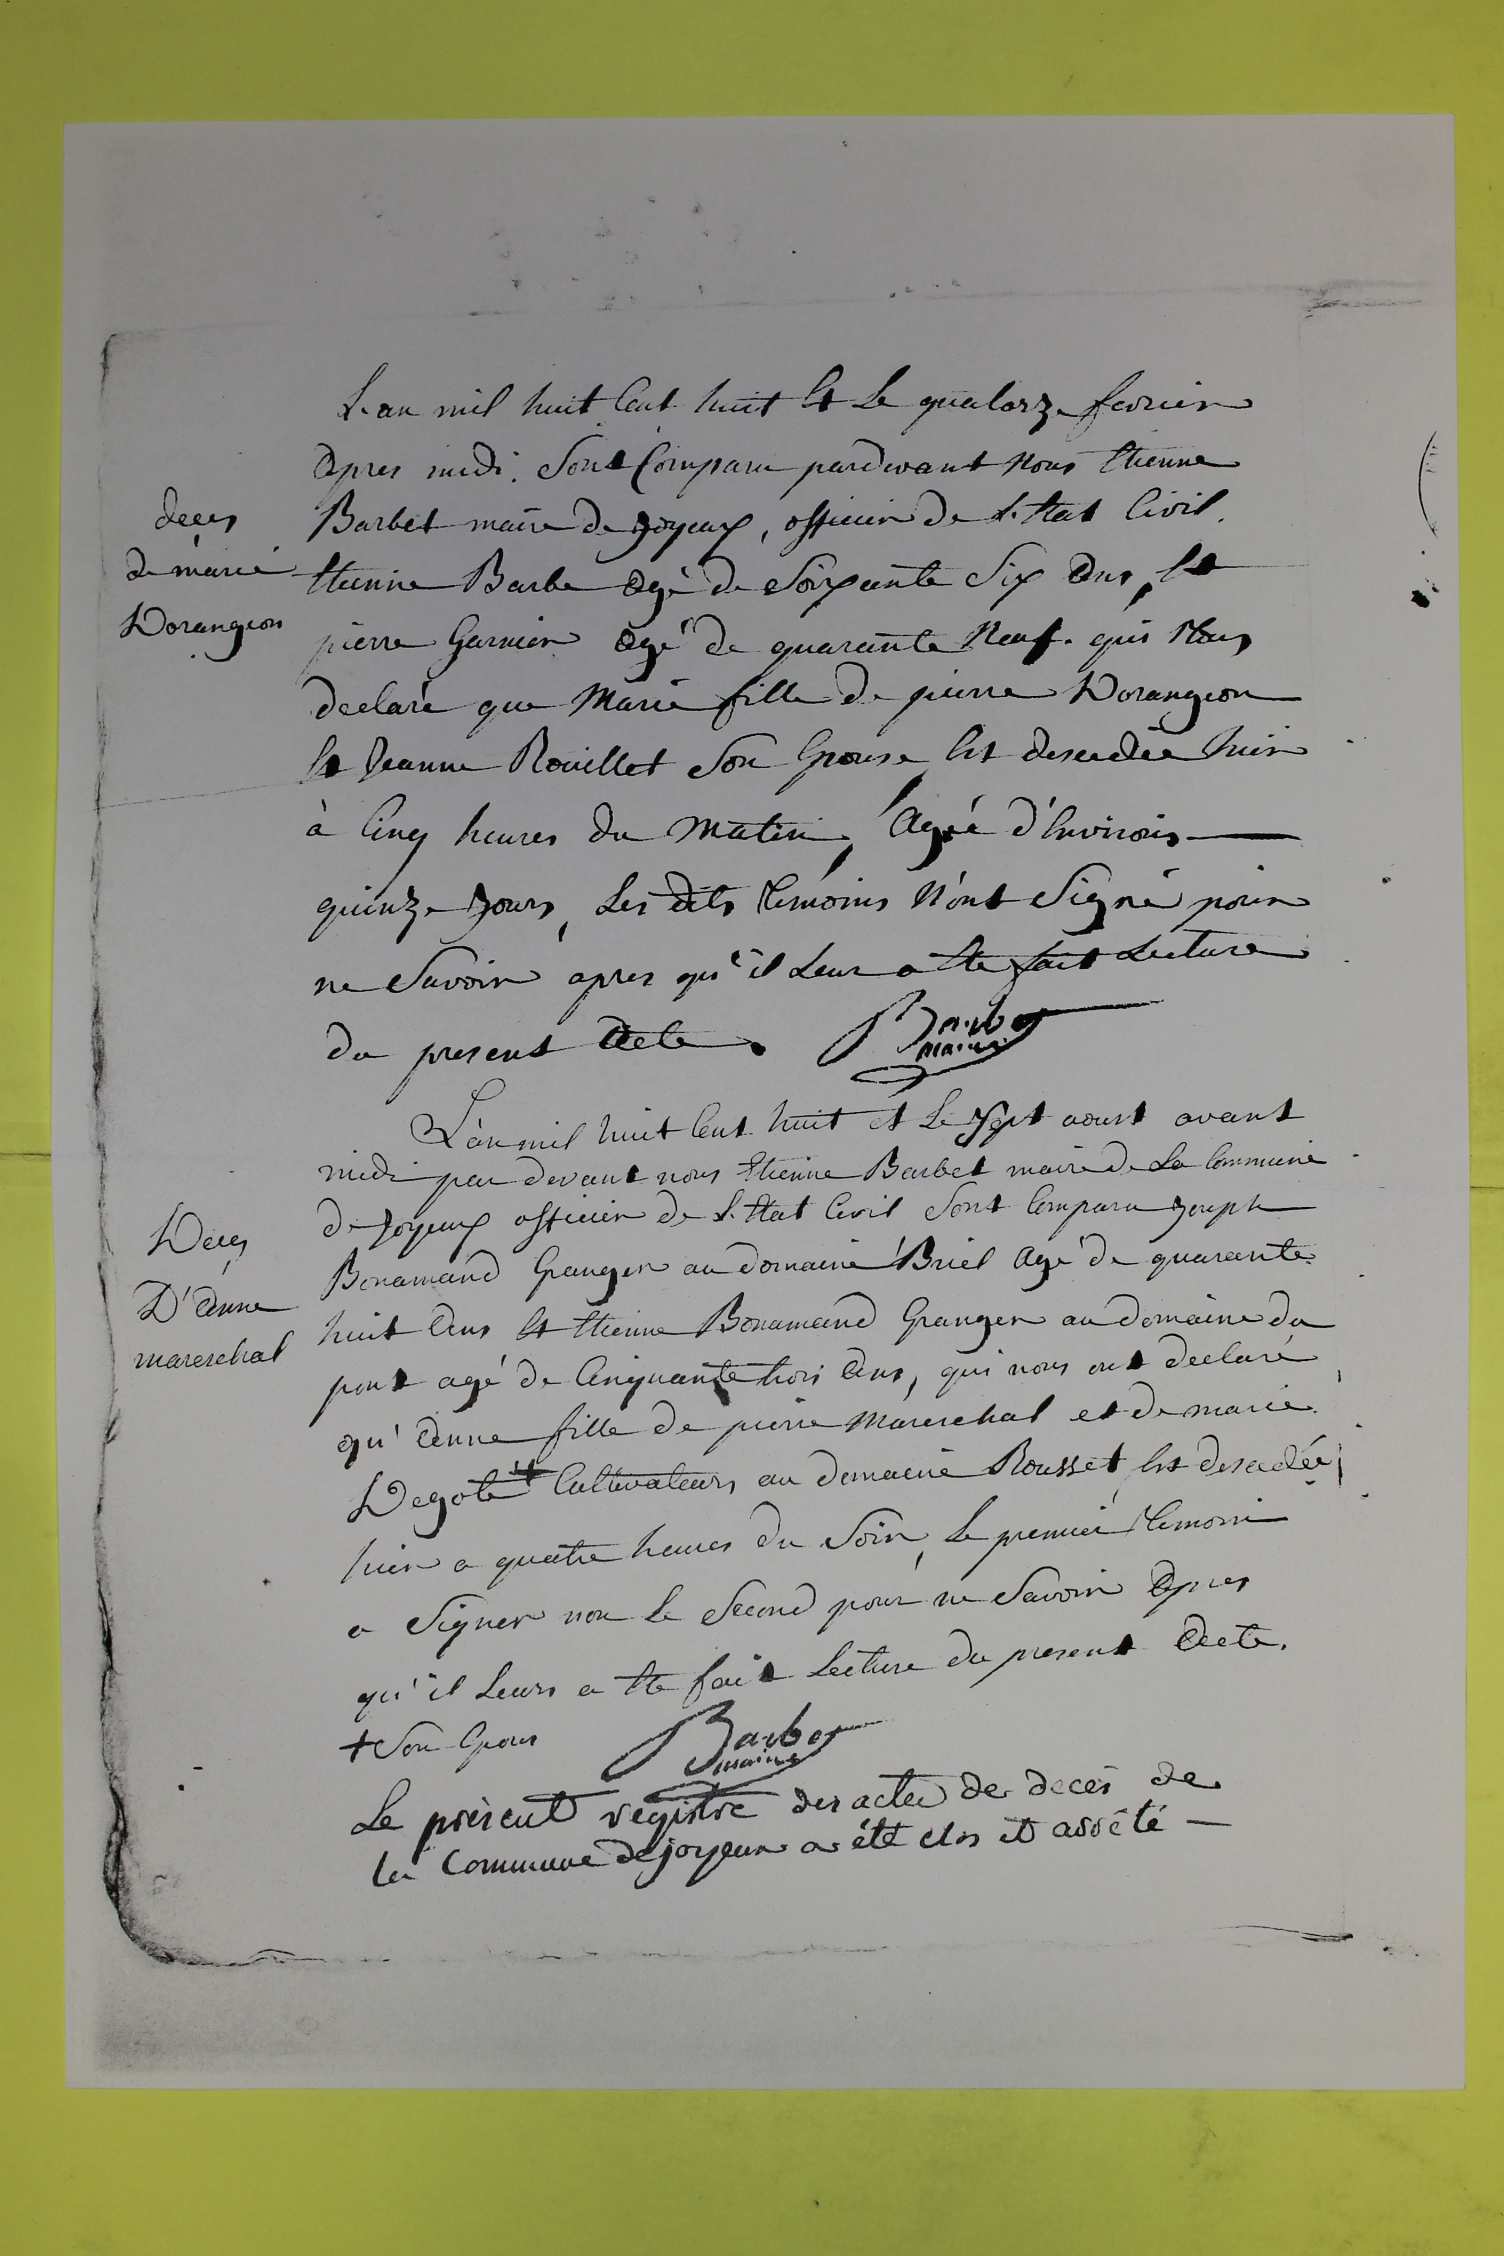 L'an mil huit Cent huit Et Le quatorze fevrier
Apres midi. Sont Comparu pardevant Nous Etienne
Barbet maire de Joyeux, officier de L'Etat Civil.
Etienne Barbe Agé de Soixante Six Ans, Et
pierre Garnier Agé de quarante Neuf. qui Nous
declaré que Marie fille de pierre Dorangeon
Et Jeanne Rouillet Son Epouse Est descedée hier
à Cinq heures du Matin, Agée d'Environ
quinze Jours, Les dits temoins N'ont Signé pour
ne Savoir apres qu'il Leur a Ete fait Lecture
du present Acte.
Barbet
maire
deces
de marie
Dorangeon
L'an mil huit Cent huit et Le Sept aoust avant
midi par devant nous Etienne Barbet maire de La Commune
de Joyeux officier de L'Etat Civil Sont Comparu Joseph
Bonamand Granger au domaine Briel Agé de quarante
huit Ans Et Etienne Bonamand Granger au domaine du
pont agé de Cinquante trois Ans, qui nous ont declaré
qu'Anne fille de pierre Mareschal et de marie
Degote + Cultivateurs au domaine Rousset Est descedée
hier a quatre heures du Soir, Le premier temoin
a Signer non Le Second pour ne Savoir Apres
qu'il Leurs a Ete fait Lecture du present Acte.
+ Son Epous
Barbet
maire
Deces
D'Anne
mareschal
Le présent registre des actes de décès de
la Commune de joyeux a été clos et arrêté